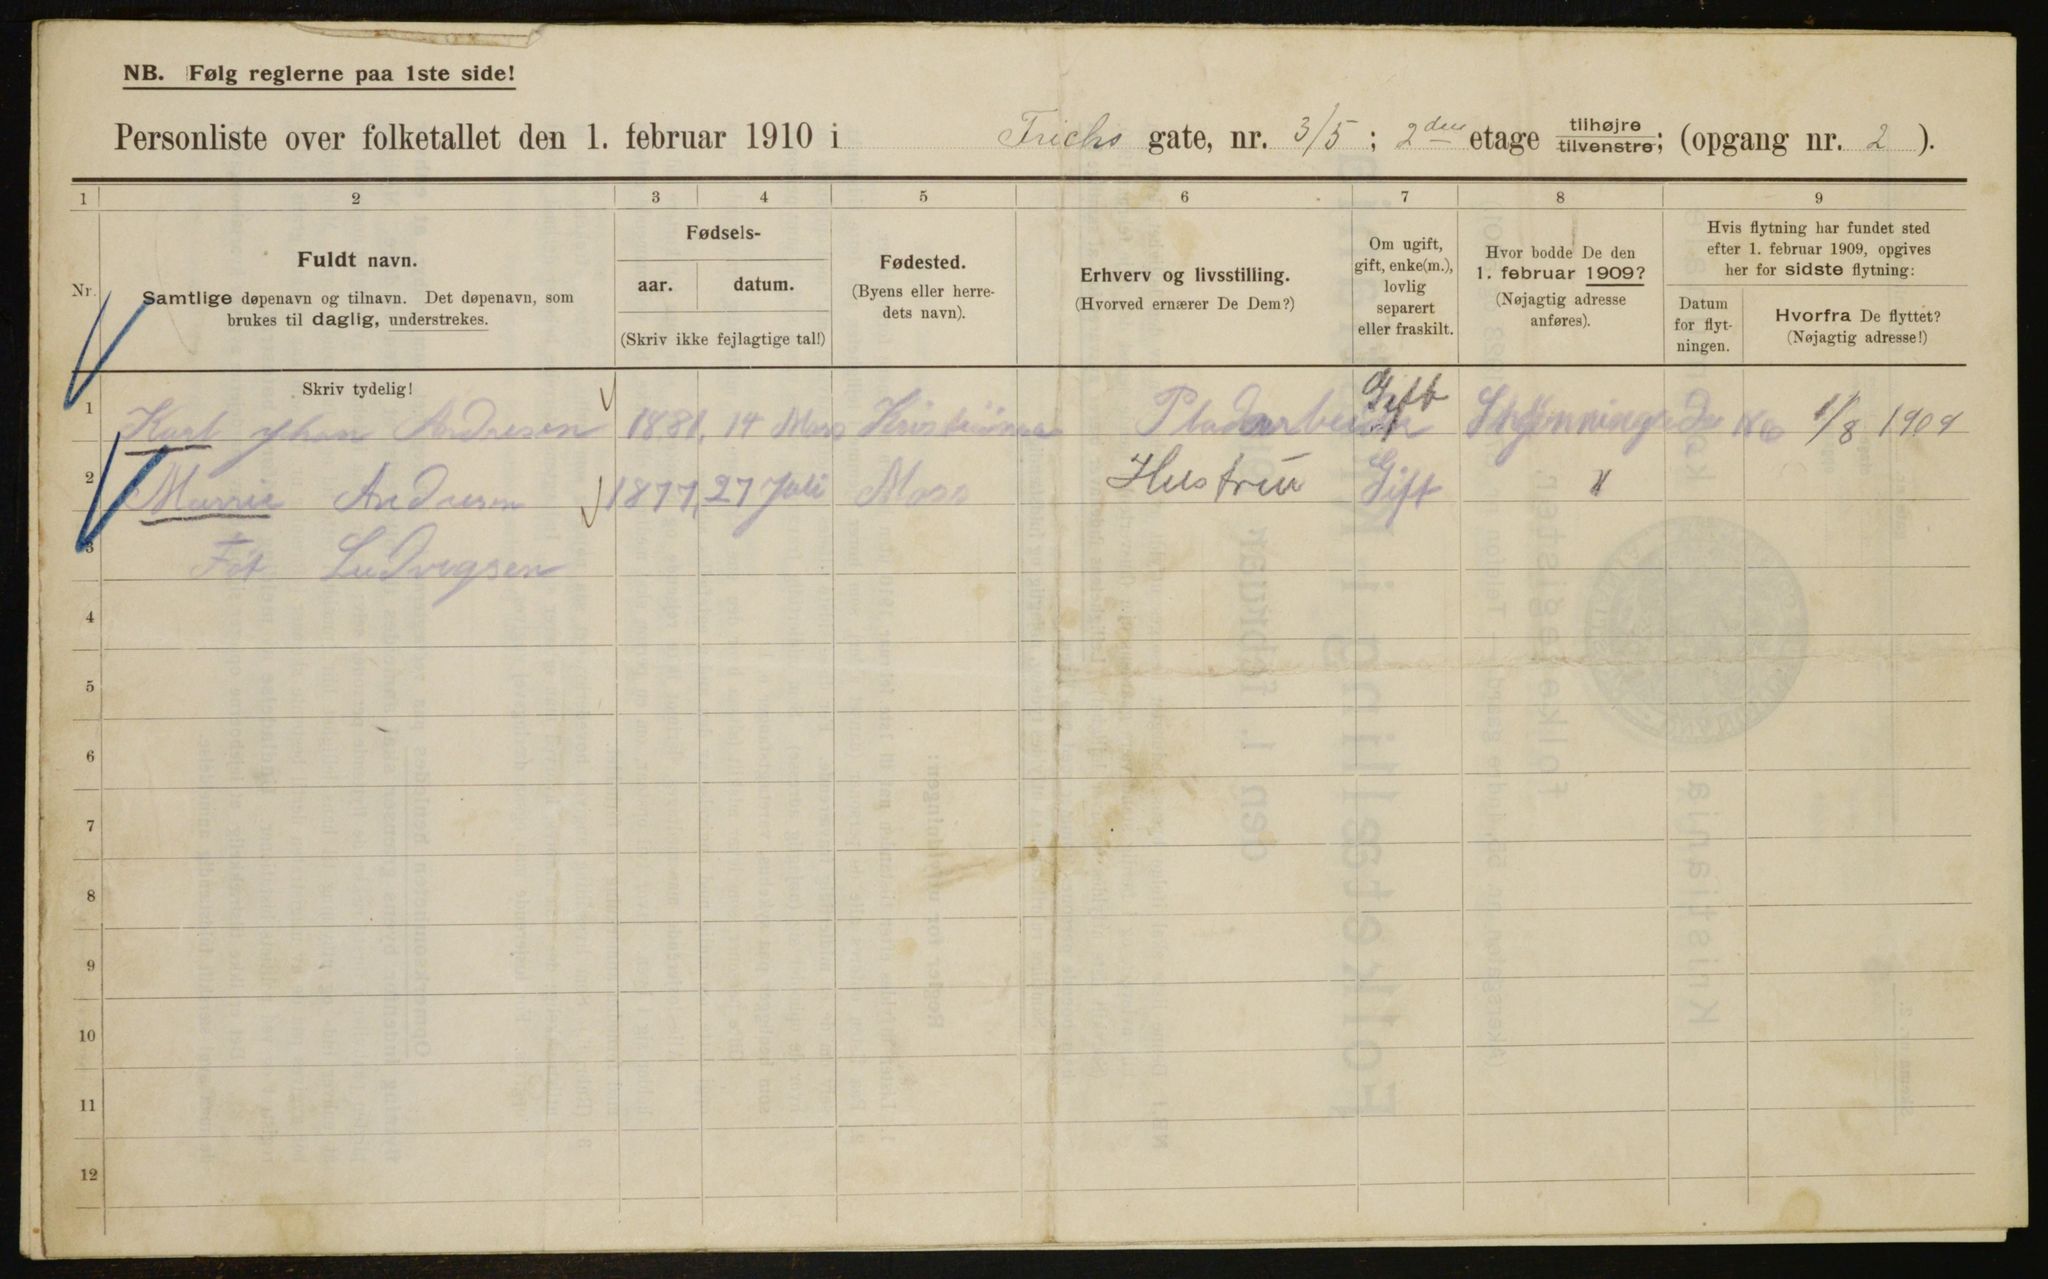 NB. Følg reglerne paa 1ste side!
Personliste over folketallet den 1. februar 1910 i Frichs gate, nr. 3/5 ; 2den etage tilhøjre tilvenstre; (opgang nr. 2 ).
1 2 3 4 5 6 7 8 9
Nr.
Fuldt navn.
Samtlige døpenavn og tilnavn. Det døpenavn, som
brukes til daglig, understrekes.
Fødsels-
aar. datum.
(Skriv ikke fejlagtige tal!)
Fødested.
(Byens eller herre-
dets navn).
Erhverv og livsstilling.
(Hvorved ernærer De Dem?)
Om ugift,
gift, enke(m.),
lovlig
separert
eller fraskilt.
Hvor bodde De den
1. februar 1909?
(Nøjagtig adresse
anføres).
Hvis flytning har fundet sted
efter 1. februar 1909, opgives
her for sidste flytning:
Datum
for flyt-
ningen.
Hvorfra De flyttet?
(Nøjagtig adresse!)
Skriv tydelig!
1 Karl Johan Andresen 1881, 14 Mars Kristiania Gift 1/8 1909
2 Marrie Andresen 1877, 27 Juli Moss Hustrue Gift "
3 Föt Ludvigsen
4
5
6
7
8
9
10
11
12